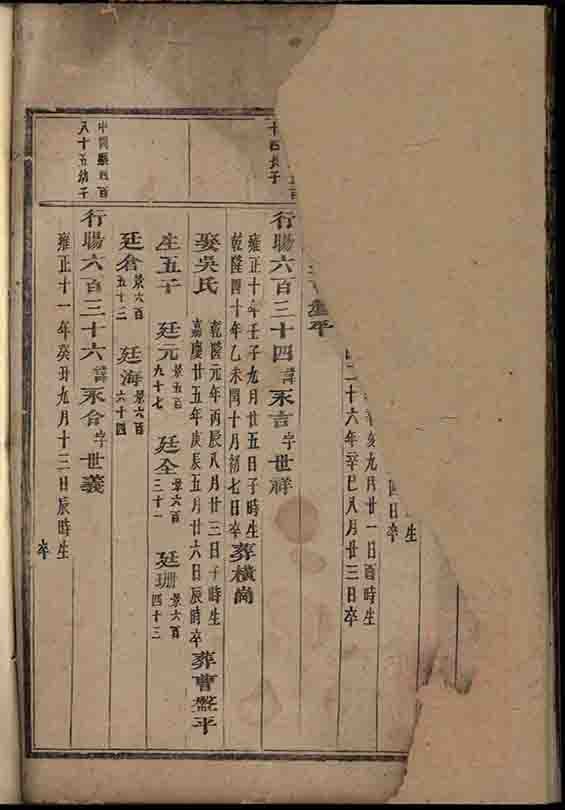 生
四日卒
亥九月廿一日酉時生
二十六年辛巳八月廿三日卒
盤平
十四長子
行暘六百三十四諱永吉字世祥
雍正十年壬子九月廿五日子時生
乾隆四十年乙未閏十月初七日卒
葬橫崗
娶吳氏
乾隆元年丙辰八月廿三日子時生
嘉慶廿五年庚辰五月廿六日辰時卒
葬曹盤平
生五子
廷元景五百九十七
廷全景六百三十一
廷珊景六百四十三
廷倉景六百五十二
廷海景六百六十四
四百
八十五幼子
行暘六百三十六諱永合字世義
雍正十一年癸丑九月十三日辰時生
卒